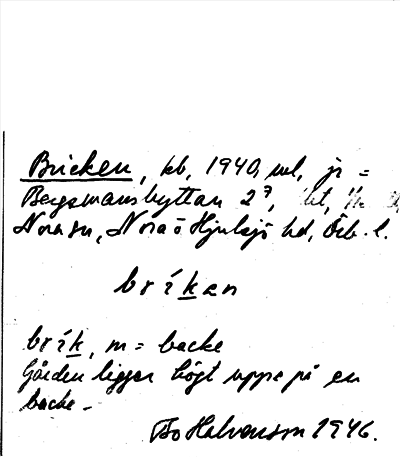 Bricken, kb, 1940, ml, jr =
Bergsmanshyttan 2³,
Nora sn, Nora o Hjulsjö hd, Örb. l.
bríkan
brík, m = backe
Gården ligger högt uppe på en
backe -
Bo Halvenson 1946.